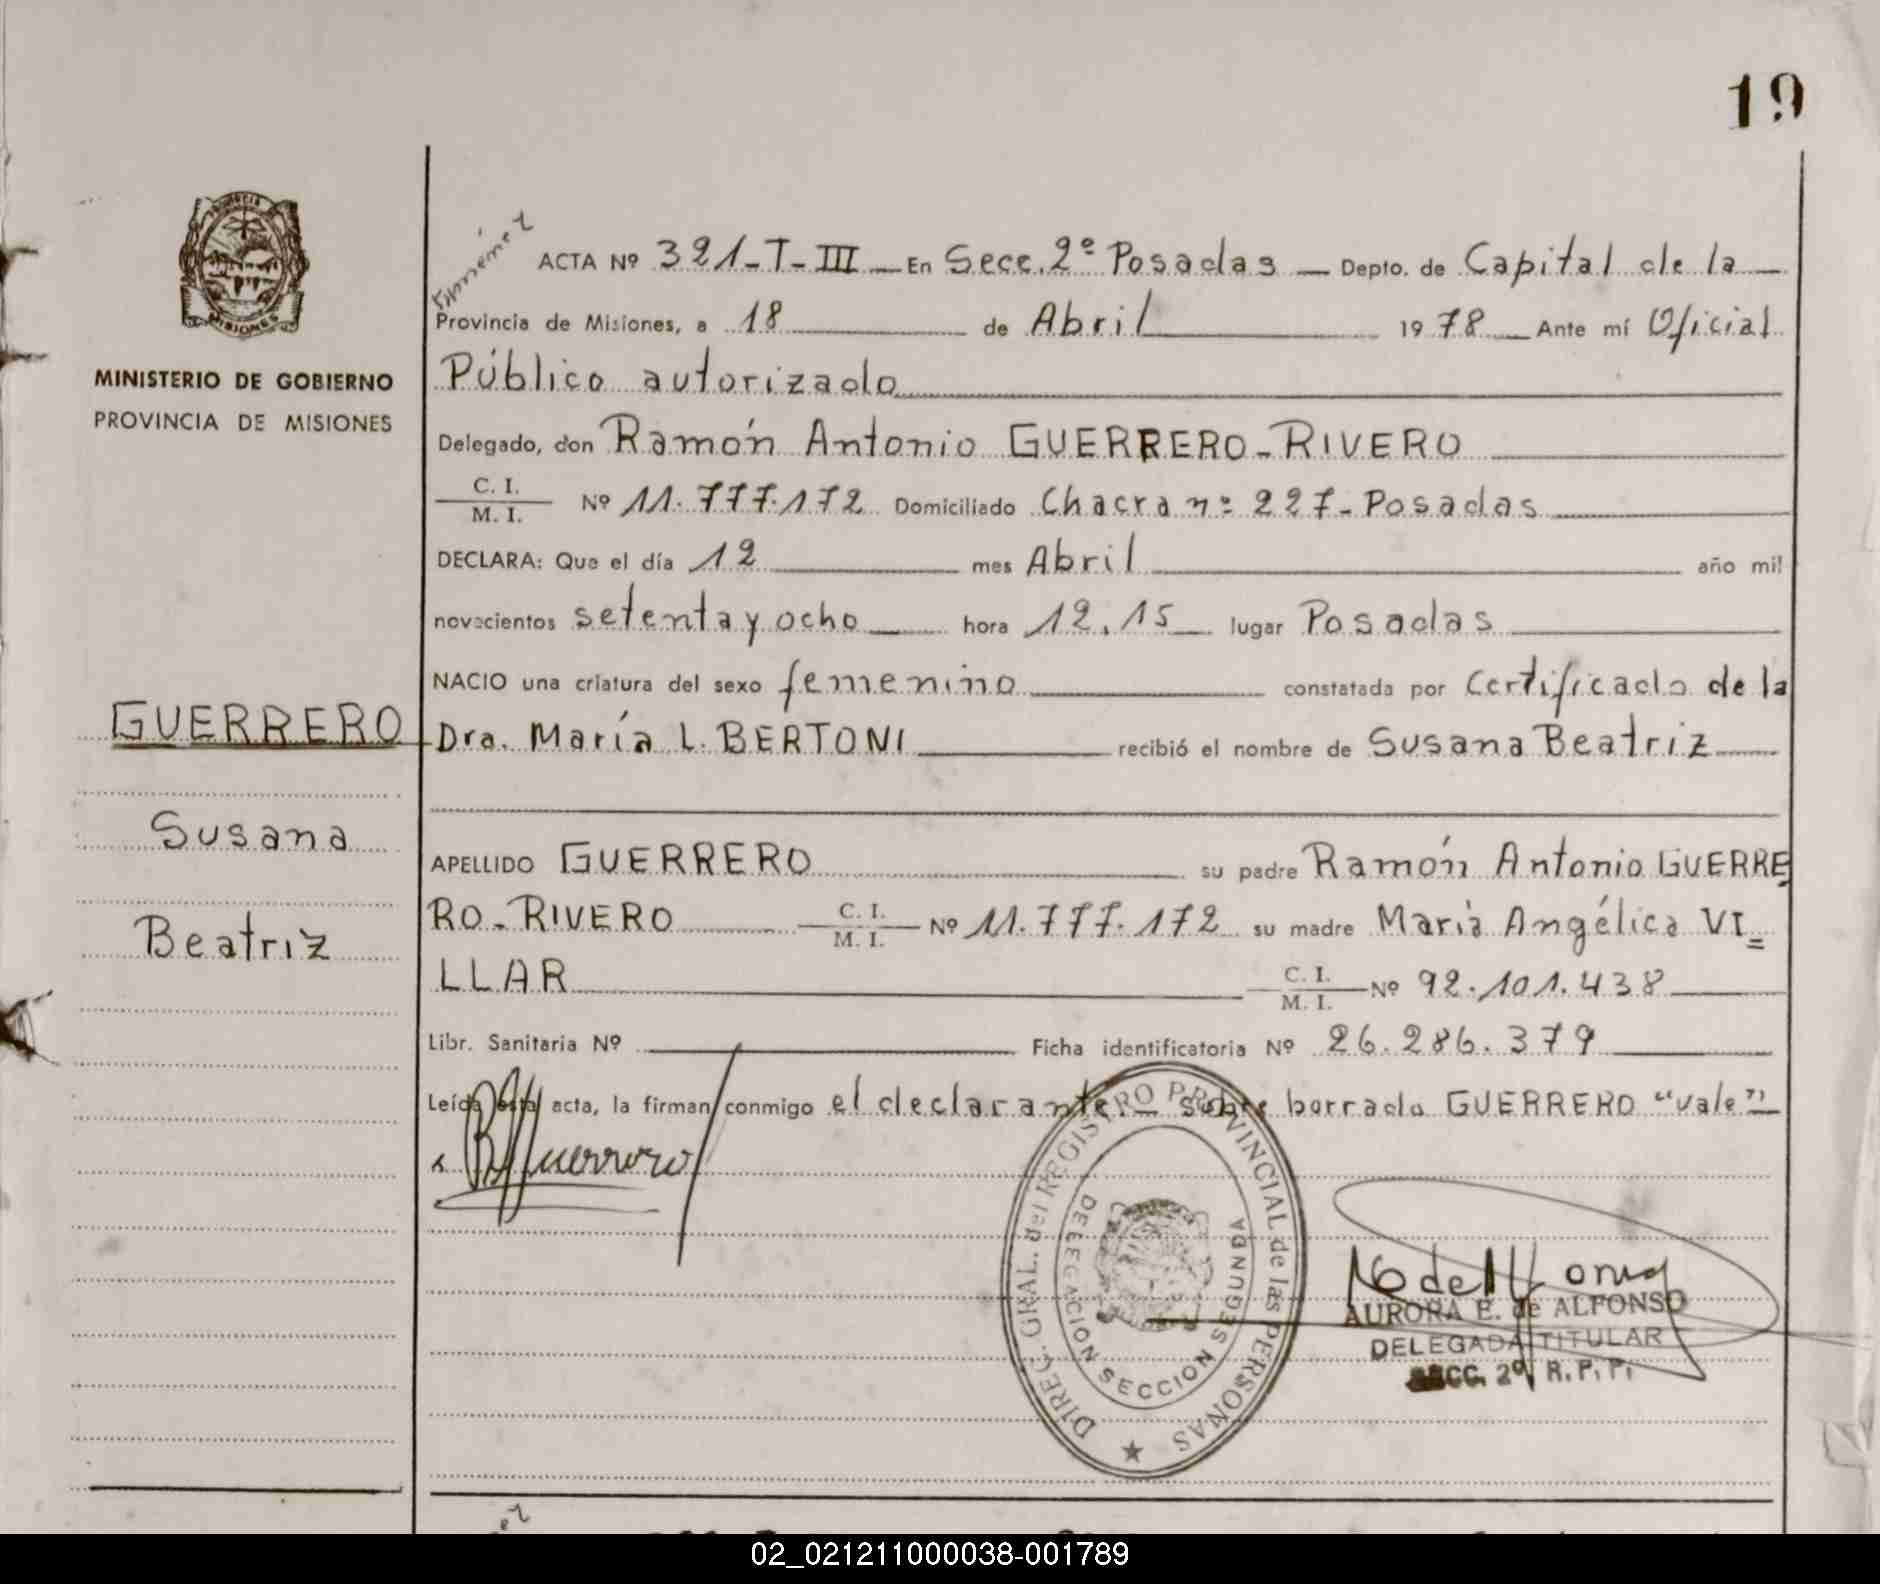 19
PROVINCIA
MISIONES
MINISTERIO DE GOBIERNO
PROVINCIA DE MISIONES
GUERRERO
Susana
Beatriz
ACTA Nº 321-T-III - En Secc. 2º Posadas - Depto. de Capital de la -
Provincia de Misiones, a 18 de Abril 1978 Ante mí Oficial
Público autorizado
Delegado, don Ramón Antonio GUERRERO-RIVERO
C. I.
M. I. Nº 11.777.172 Domiciliado Chacra nº 227-Posadas
DECLARA: Que el día 12 mes Abril año mil
novecientos setenta y ocho hora 12.15 lugar Posadas
NACIO una criatura del sexo femenino constatada por Certificado de la
Dra. María L. BERTONI recibió el nombre de Susana Beatriz
APELLIDO GUERRERO su padre Ramón Antonio GUERRE
RO-RIVERO C. I.
M. I. Nº 11.777.172 su madre María Angélica VI=
LLAR C. I.
M. I. Nº 92.101.438
Libr. Sanitaria Nº Ficha identificatoria Nº 26.286.379
Leída esta acta, la firman conmigo el declarante.- Sobre borrado GUERRERO "vale"-
Guerrero
DIREC. GRAL. del REGISTRO PROVINCIAL de las PERSONAS
DELEGACION SECCION SEGUNDA
AURORA E. de ALFONSO
DELEGADA TITULAR
SECC. 2º, R. P. P.
02_021211000038-001789